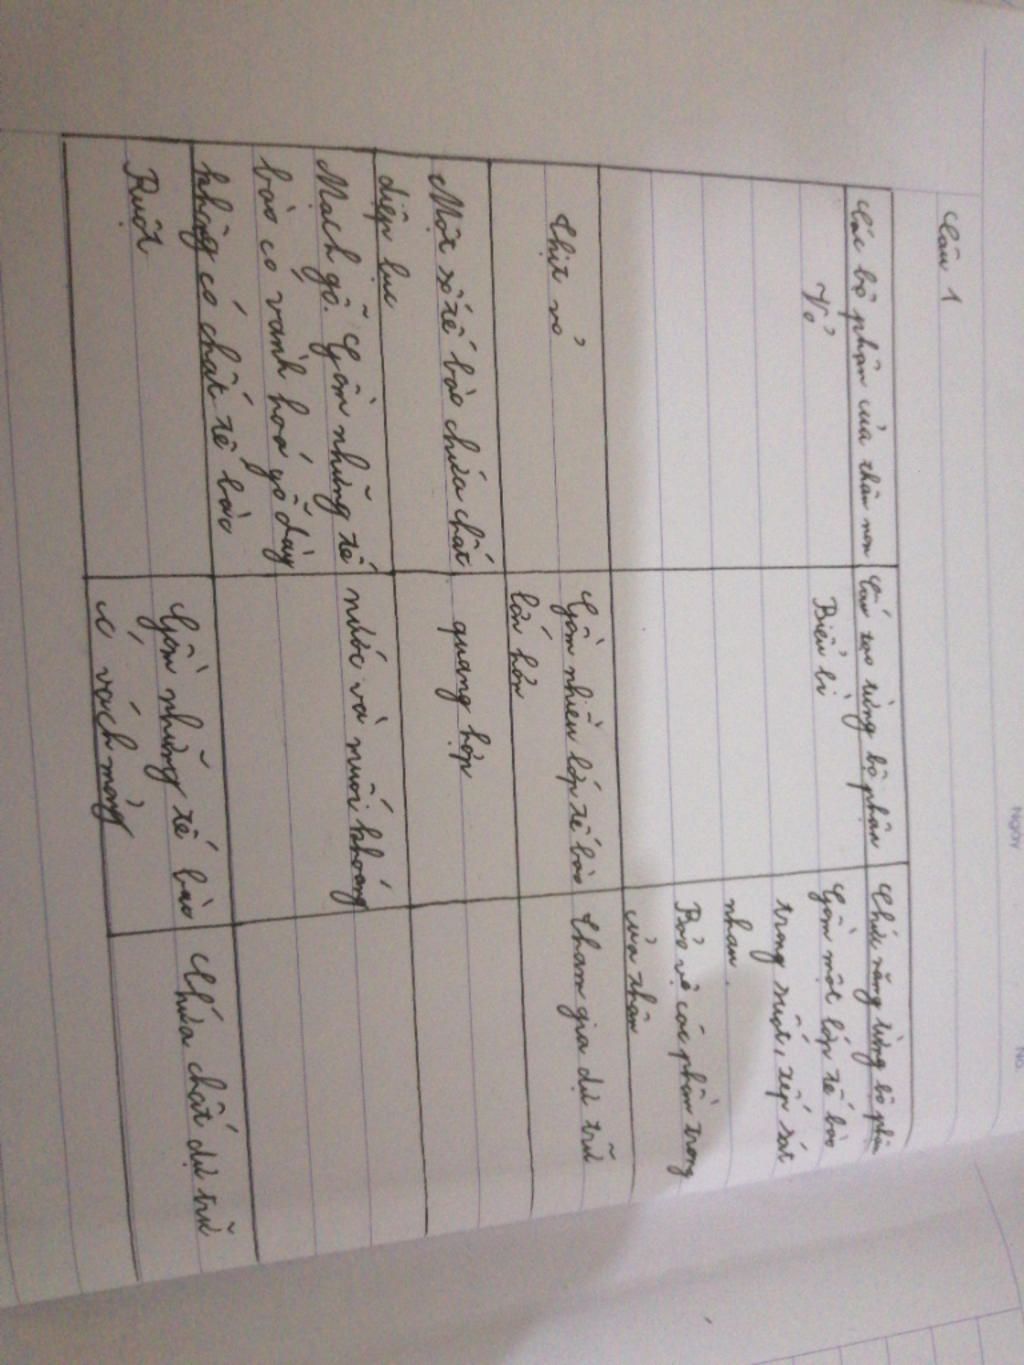 Câu 1
Các bộ phận của thân non
Cấu tạo từng bộ phận
Chức năng từng bộ phận
Vỏ
Biểu bì
Gồm một lớp tế bào
trong suốt, xếp sát
nhau.
Bảo vệ các phần trong
của thân
Thịt vỏ
Gồm nhiều lớp tế bào
lớn hơn
Tham gia dự trữ
Một số tế bào chứa chất
diệp lục
quang hợp
Mạch gỗ. Gồm những tế
bào có vách hoá gỗ dày
không có chất tế bào
nước và muối khoáng
Ruột
Gồm những tế bào
có vách mỏng
Chứa chất dự trữ
Ngày
No.